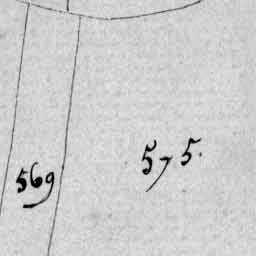 569
575.